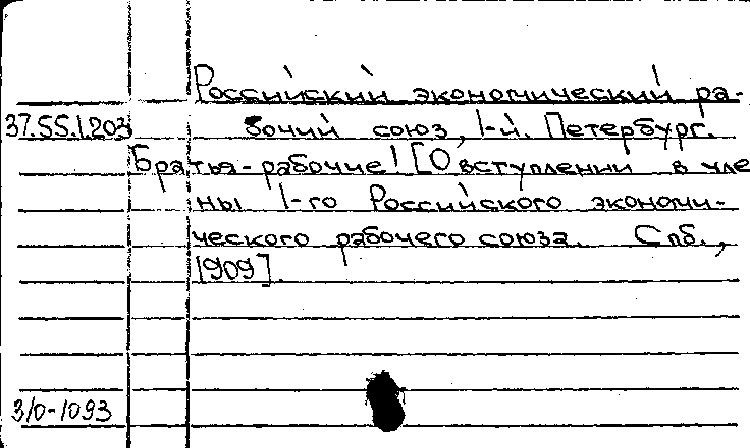 Российский экономический ра-
37.55.1.203 бочий союз, 1-й. Петербург.
Братья-рабочие! [О вступлении в чле
ны 1-го Российского экономи-
ческого рабочего союза. Спб.,
1909].
3/0-1093